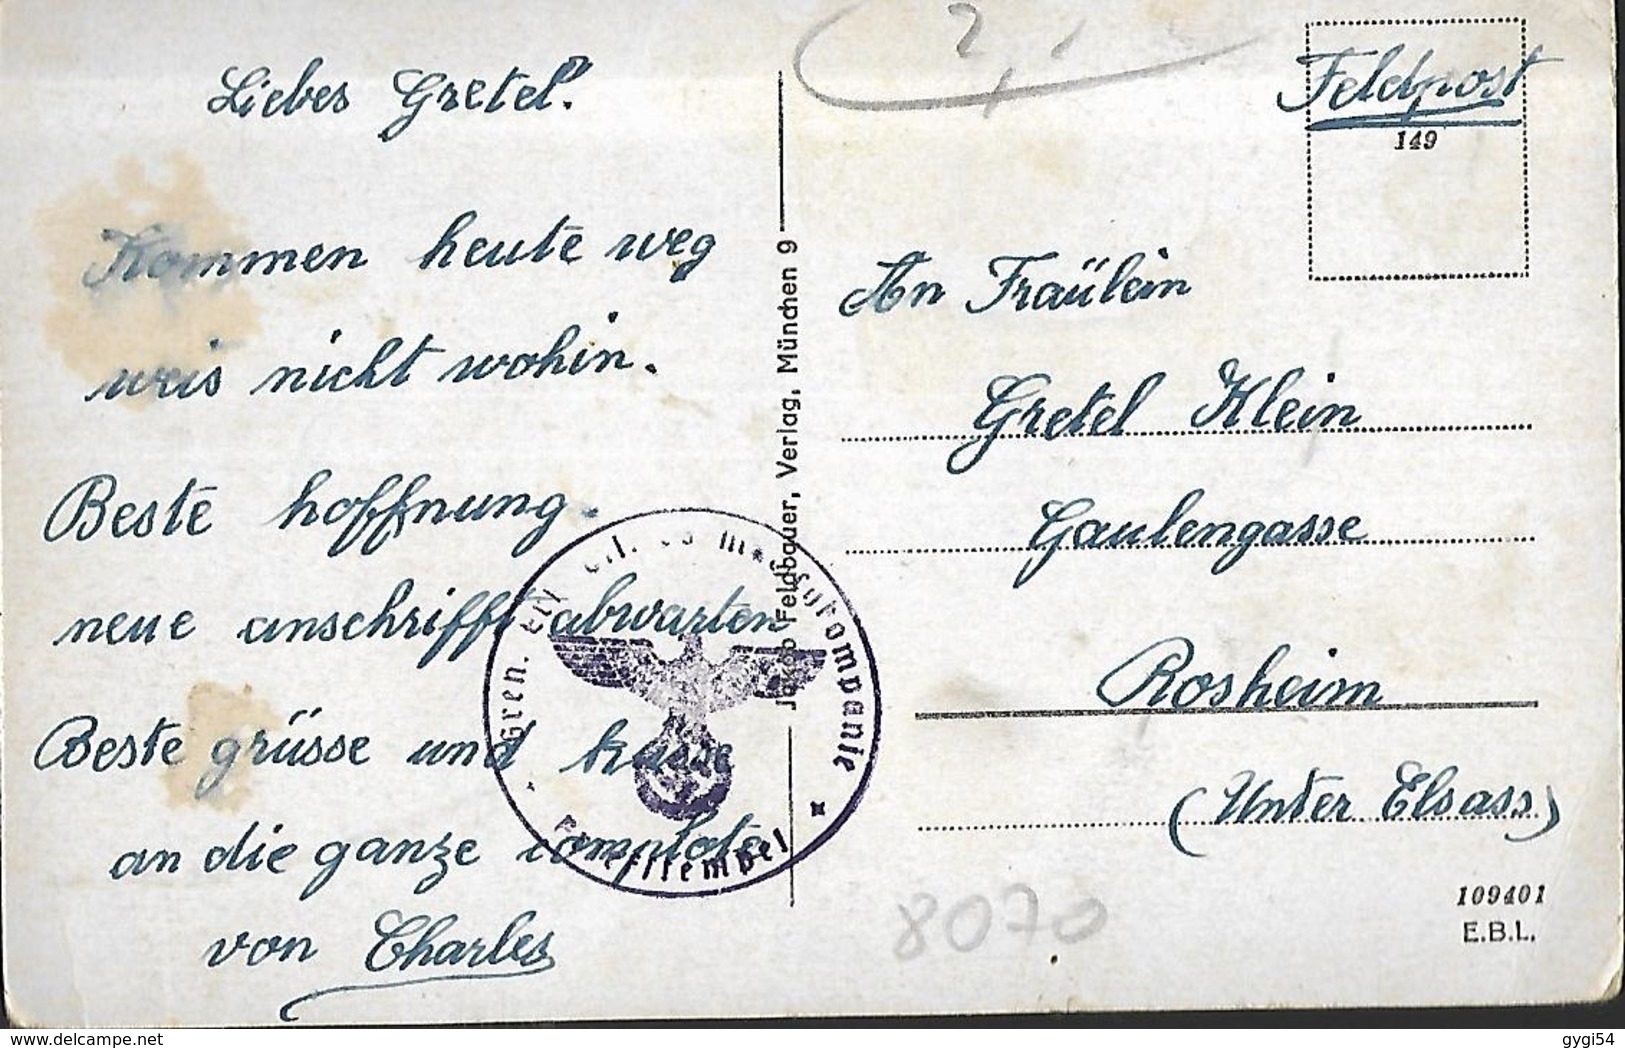 Liebes Gretel!
Kommen heute weg
weis nicht wohin.
Beste hoffnung.
neue anschrifft abwarten
Beste grüsse und küsse
an die ganze
von Charles
Jakob Feldbauer, Verlag, München 9
Feldpost
149
An Fräulein
Gretel Klein
Gaulengasse
Rosheim
(Unter Elsass)
Gren.
kompanie
Briefstempel
8070
109401
E.B.L.
www.delcampe.net
gygi54